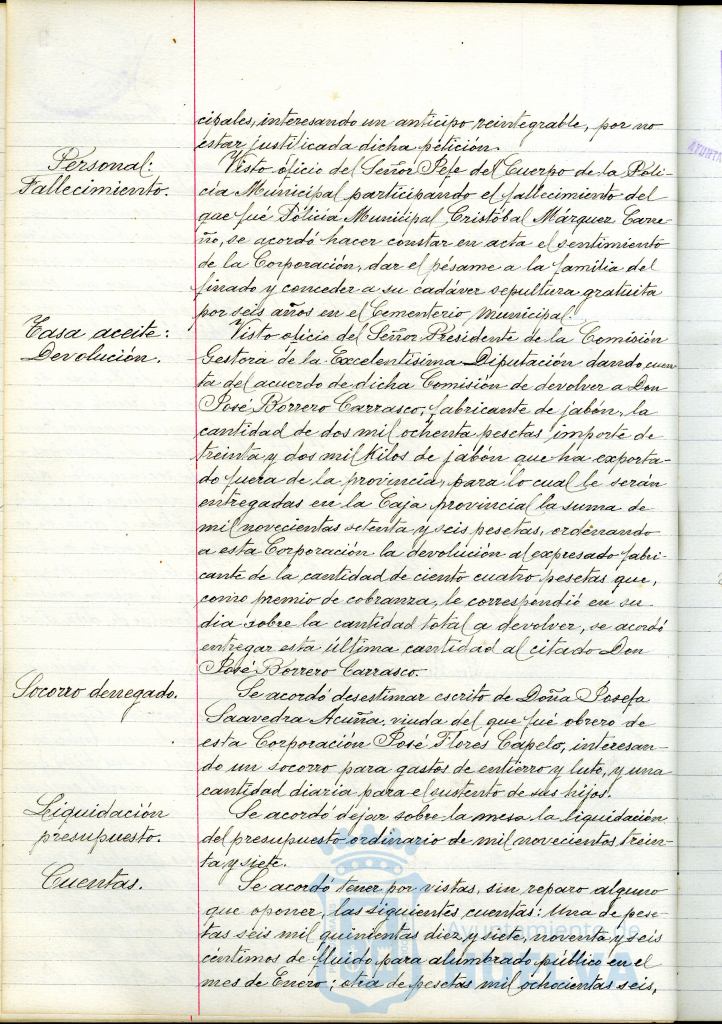 cipales, interesando un anticipo reintegrable, por no
estar justificada dicha petición.
Personal:
Fallecimiento.
Visto oficio del Señor Jefe del Cuerpo de la Poli-
cia Municipal participando el fallecimiento del
que fué Policia Municipal Cristóbal Márquez Carre-
ño, se acordó hacer constar en acta el sentimiento
de la Corporación, dar el pésame a la familia del
finado y conceder a su cadáver sepultura gratuita
por seis años en el Cementerio Municipal.
Tasa aceite:
Devolución.
Visto oficio del Señor Presidente de la Comisión
Gestora de la Excelentisima Diputación dando cuen-
ta del acuerdo de dicha Comisión de devolver a Don
José Borrero Carrasco, fabricante de jabón, la
cantidad de dos mil ochenta pesetas importe de
treinta y dos mil kilos de jabón que ha exporta-
do fuera de la provincia, para lo cual le serán
entregadas en la Caja provincial la suma de
mil novecientas setenta y seis pesetas, ordenando
a esta Corporación la devolución al expresado fabri-
cante de la cantidad de ciento cuatro pesetas que,
como premio de cobranza, le correspondió en su
dia sobre la cantidad total a devolver, se acordó
entregar esta última cantidad al citado Don
José Borrero Carrasco.
Socorro denegado.
Se acordó desestimar escrito de Doña Josefa
Saavedra Acuña, viuda del que fué obrero de
esta Corporación José Flores Capelo, interesan-
do un socorro para gastos de entierro y luto, y una
cantidad diaria para el sustento de sus hijos.
Liquidación
presupuesto.
Se acordó dejar sobre la mesa la liquidación
del presupuesto ordinario de mil novecientos trein-
ta y siete.
Cuentas.
Se acordó tener por vistas, sin reparo alguno
que oponer, las siguientes cuentas: Una de pese-
tas seis mil quinientas diez y siete, noventa y seis
céntimos de fluido para alumbrado público en el
mes de Enero; otra de pesetas mil ochocientas seis,
Ayuntamiento de
HUELVA